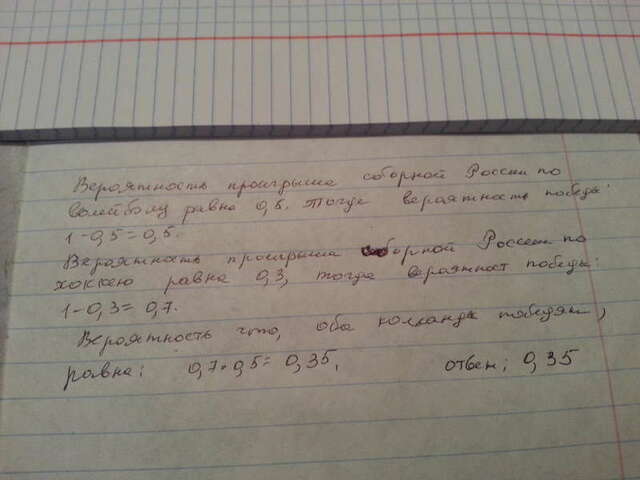 Вероятность проигрыша сборной России по
волейболу равна 0,5. Тогда вероятность победы:
1-0,5=0,5.
Вероятность проигрыша сборной России по
хоккею равна 0,3, тогда вероятност победы:
1-0,3=0,7.
Вероятность что, оба команды победят,
равна: 0,7·0,5=0,35. ответ: 0,35